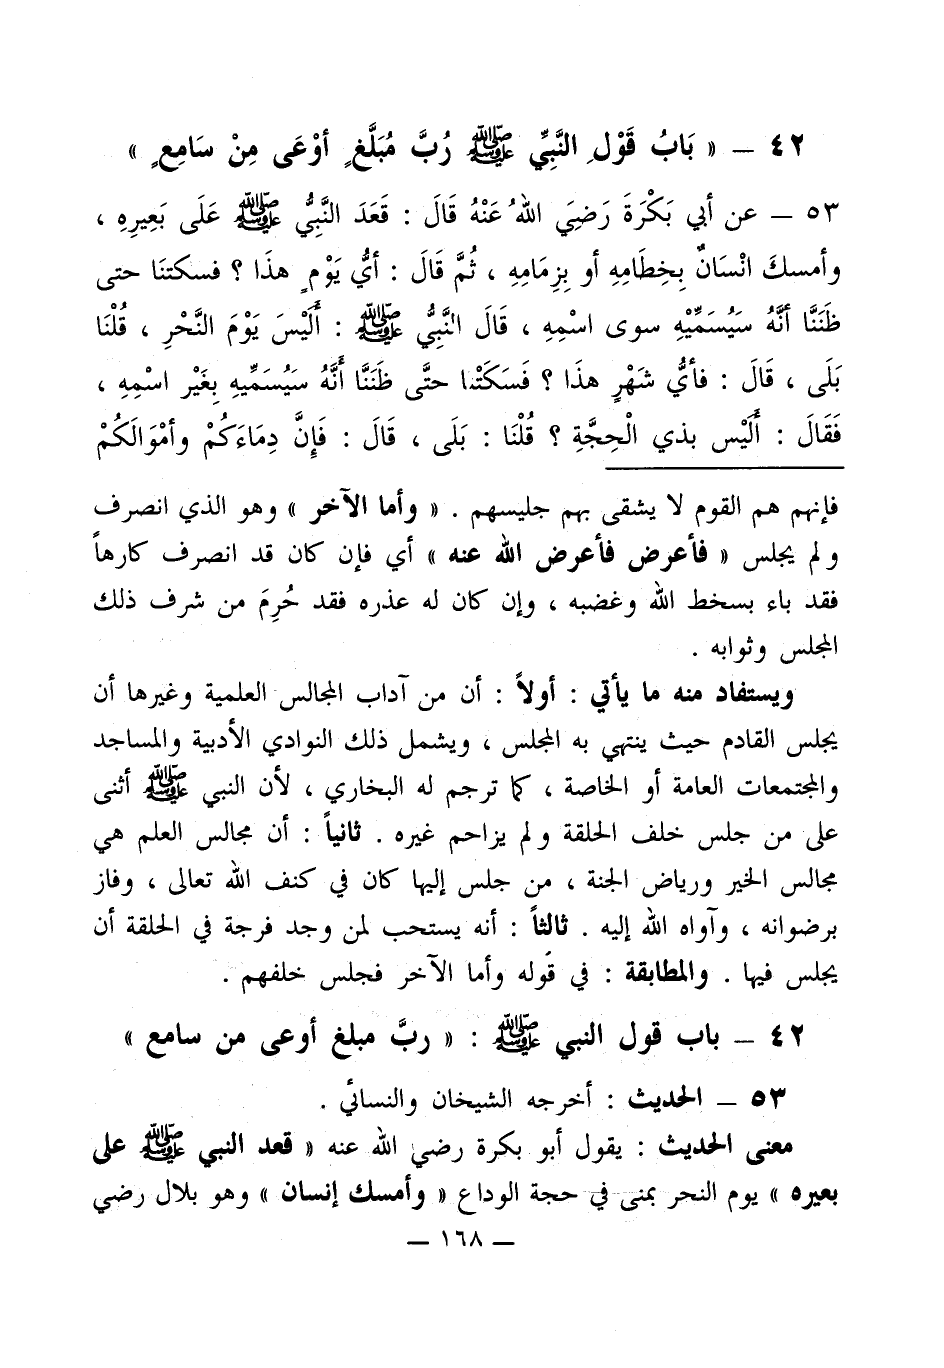 ٤٢ ــ « بَابُ قَوْلِ النَّبِّي ﷺ رُبَّ مُبَلَّغٍ أوْعَى مِنْ سَامِعٍ »
٥٣ ــ عن أبي بَكْرَةَ رَضِيَ اللهُ عَنْهُ قَالَ : قَعَدَ النَّبِيُّ ﷺ عَلَى بَعِيرِهِ ،
وأمسكَ انْسَانٌ بِخِطَامِهِ أو بِزِمَامِهِ ، ثُمَّ قَالَ : أيُّ يَوْمٍ هذَا ؟ فسكتنَا حتى
ظَنَنَّا أنَّهُ سَيُسَمِّيْهِ سوى اسْمِهِ ، قَالَ النَّبِيُّ ﷺ : أَلَيْسَ يَوْمَ النَّحْرِ ، قُلْنَا
بَلَى ، قَالَ : فأيُّ شَهْرٍ هذَا ؟ فَسَكَتْنا حتَّى ظَنَنَّا أَنَّهُ سَيُسَمِّيهِ بِغَيْر اسْمِهِ ،
فَقَالَ : أَلَيْس بذي الْحِجَّةِ ؟ قُلْنَا : بَلَى ، قَالَ : فَإِنَّ دِمَاءَكُمْ وأمْوَالَكُمْ
فإنهم هم القوم لا يشقى بهم جليسهم . « وأما الآخر » وهو الذي انصرف
ولم يجلس « فأعرض فأعرض الله عنه » أي فإن كان قد انصرف كارهاً
فقد باء بسخط الله وغضبه ، وإن كان له عذره فقد حُرِمَ من شرف ذلك
المجلس وثوابه .
ويستفاد منه ما يأتي : أولاً : أن من آداب المجالس العلمية وغيرها أن
يجلس القادم حيث ينتهي به المجلس ، ويشمل ذلك النوادي الأدبية والمساجد
والمجتمعات العامة أو الخاصة ، كما ترجم له البخاري ، لأن النبي ﷺ أثنى
على من جلس خلف الحلقة ولم يزاحم غيره . ثانياً : أن مجالس العلم هي
مجالس الخير ورياض الجنة ، من جلس إليها كان في كنف الله تعالى ، وفاز
برضوانه ، وآواه الله إليه . ثالثاً : أنه يستحب لمن وجد فرجة في الحلقة أن
يجلس فيها . والمطابقة : في قوله وأما الآخر فجلس خلفهم .
٤٢ ــ باب قول النبي ﷺ : « ربَّ مبلغ أوعى من سامع »
٥٣ ــ الحديث : أخرجه الشيخان والنسائي .
معنى الحديث : يقول أبو بكرة رضي الله عنه « قعد النبي ﷺ على
بعيره » يوم النحر بمنى في حجة الوداع « وأمسك إنسان » وهو بلال رضي
ــ ١٦٨ ــ